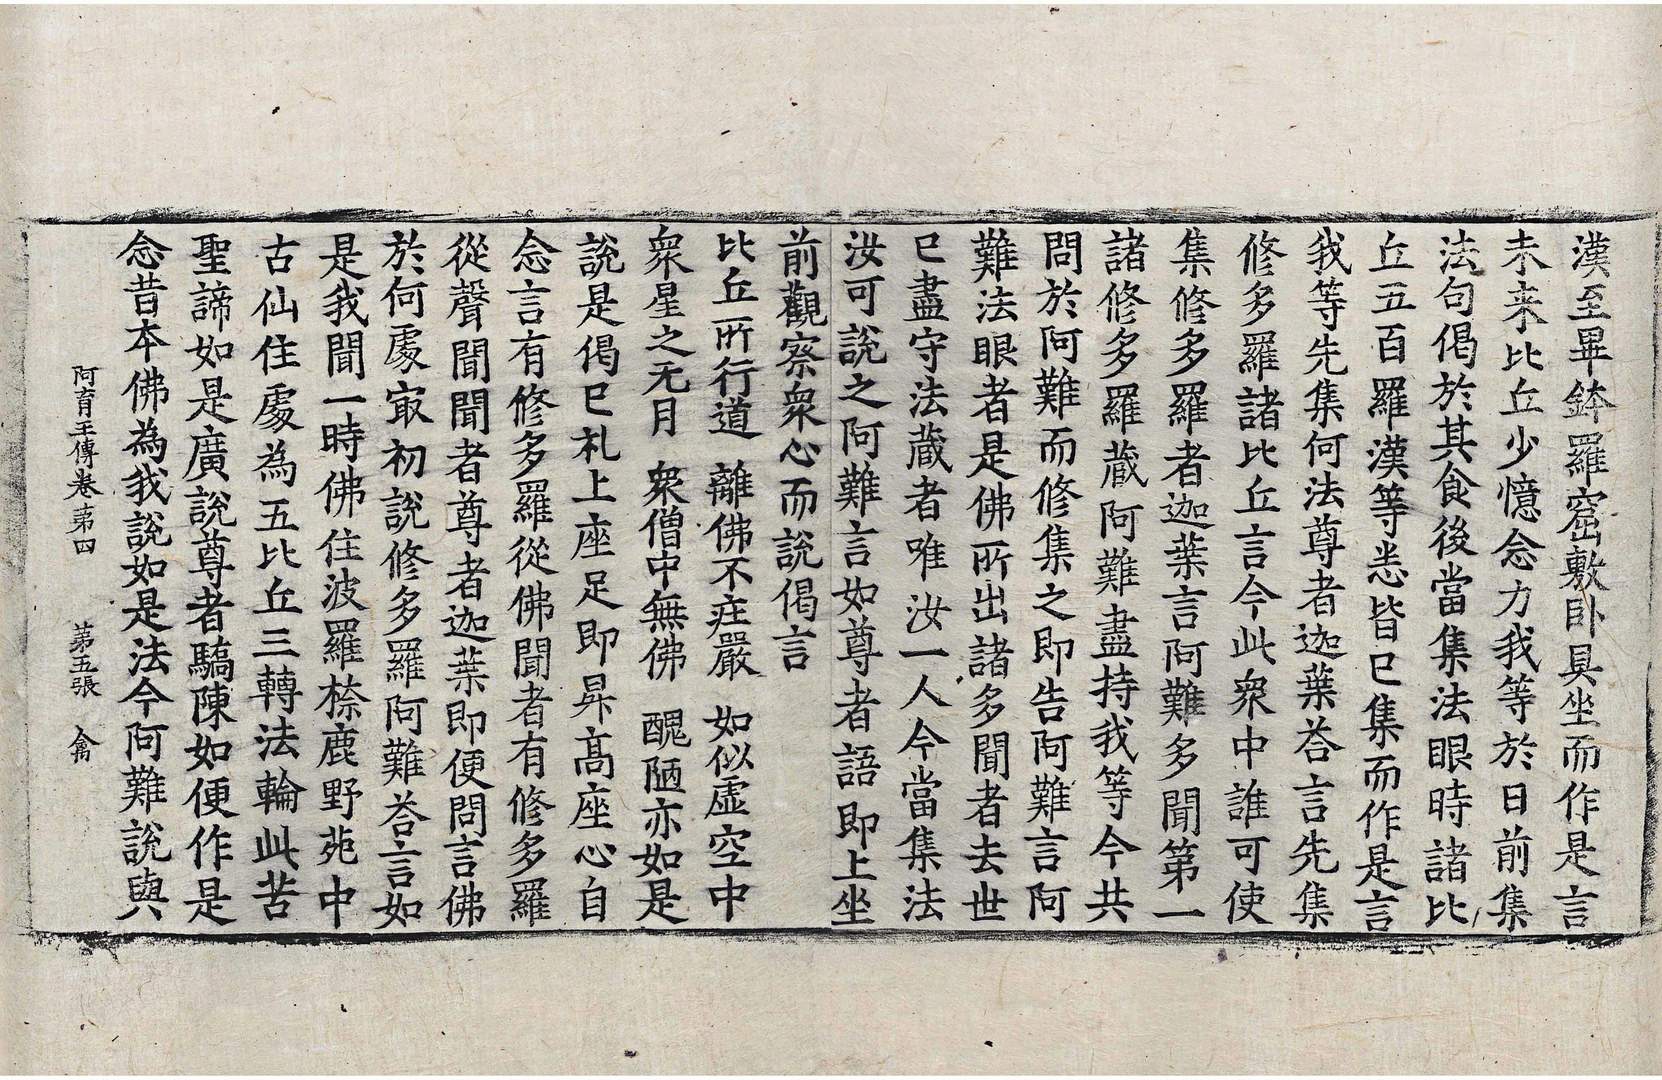 漢至畢鉢羅窟敷卧具坐而作是言
未来比丘少憶念力我等於日前集
法句偈於其食後當集法眼時諸比
丘五百羅漢等悉皆已集而作是言
我等先集何法尊者迦葉荅言先集
修多羅諸比丘言今此衆中誰可使
集修多羅者迦葉言阿難多聞第一
諸修多羅藏阿難盡持我等今共
問於阿難而修集之即告阿難言阿
難法眼者是佛所出諸多聞者去世
已盡守法藏者唯汝一人今當集法
汝可說之阿難言如尊者語即上坐
前觀察衆心而說偈言
比丘所行道　離佛不疘嚴　如似虚空中
衆星之无月　衆僧中無佛　醜陋亦如是
說是偈已礼上座足即昇高座心自
念言有修多羅從佛聞者有修多羅
從聲聞聞者尊者迦葉即便問言佛
於何處冣初說修多羅阿難荅言如
是我聞一時佛住波羅㮈鹿野苑中
古仙住處為五比丘三轉法輪此苦
聖諦如是廣說尊者驕陳如便作是
念昔本佛為我說如是法今阿難說與
阿育王傳卷第四　第五張　禽